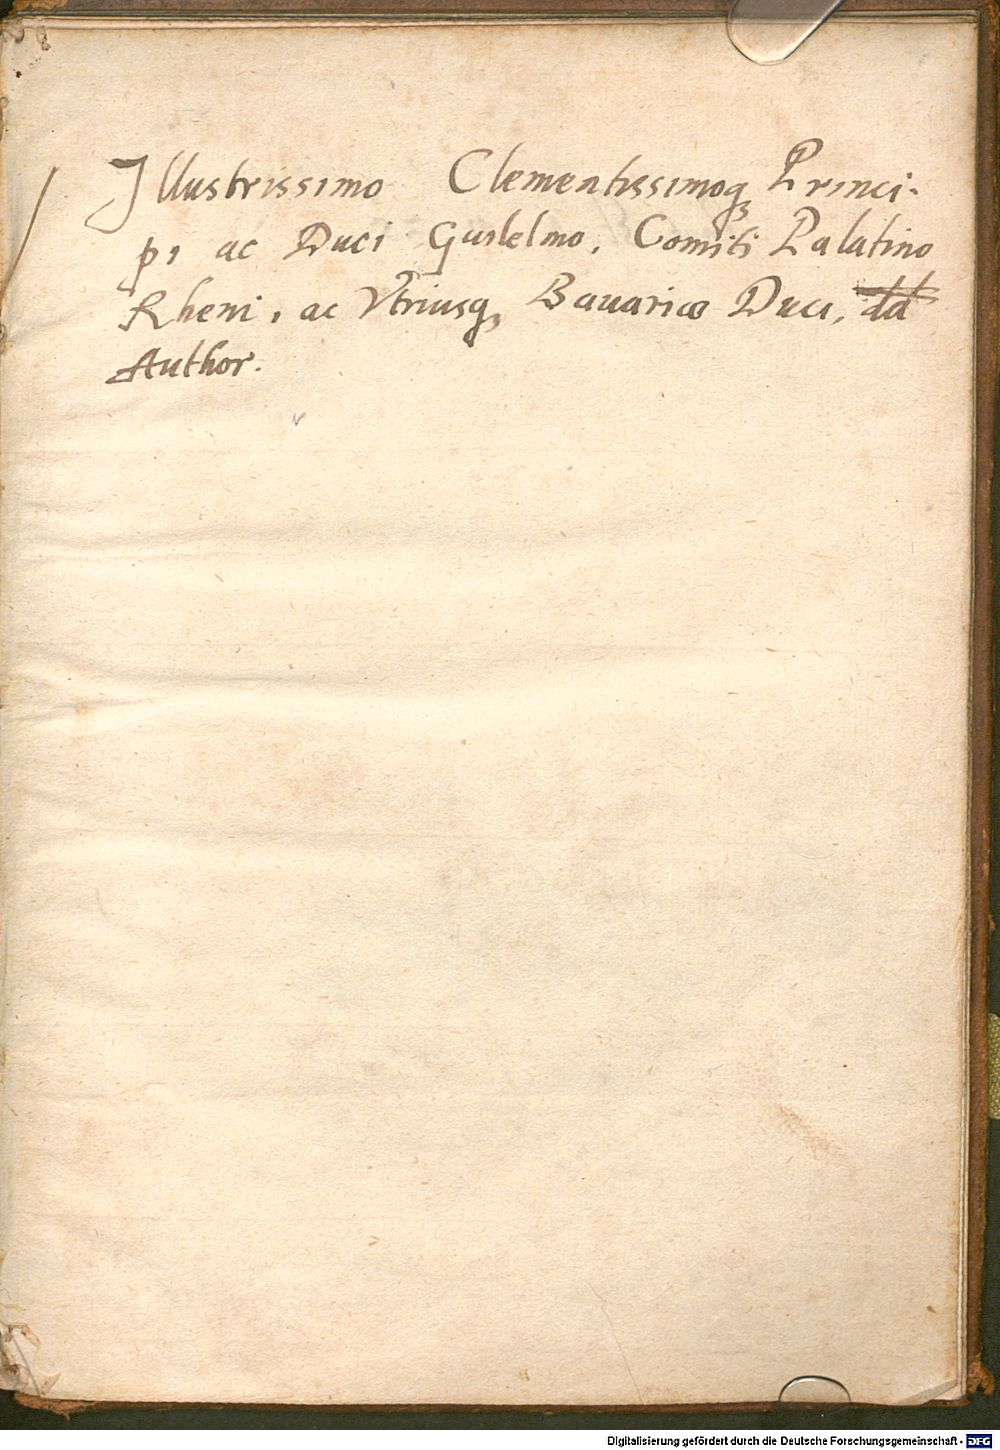 Illustrissimo Clementissimoq; Princi-
pi ac Duci Guilelmo, Comiti Palatino
Rheni, ac Vtriusq; Bauariæ Duci, dd
Author.
Digitalisierung gefördert durch die Deutsche Forschungsgemeinschaft - DFG